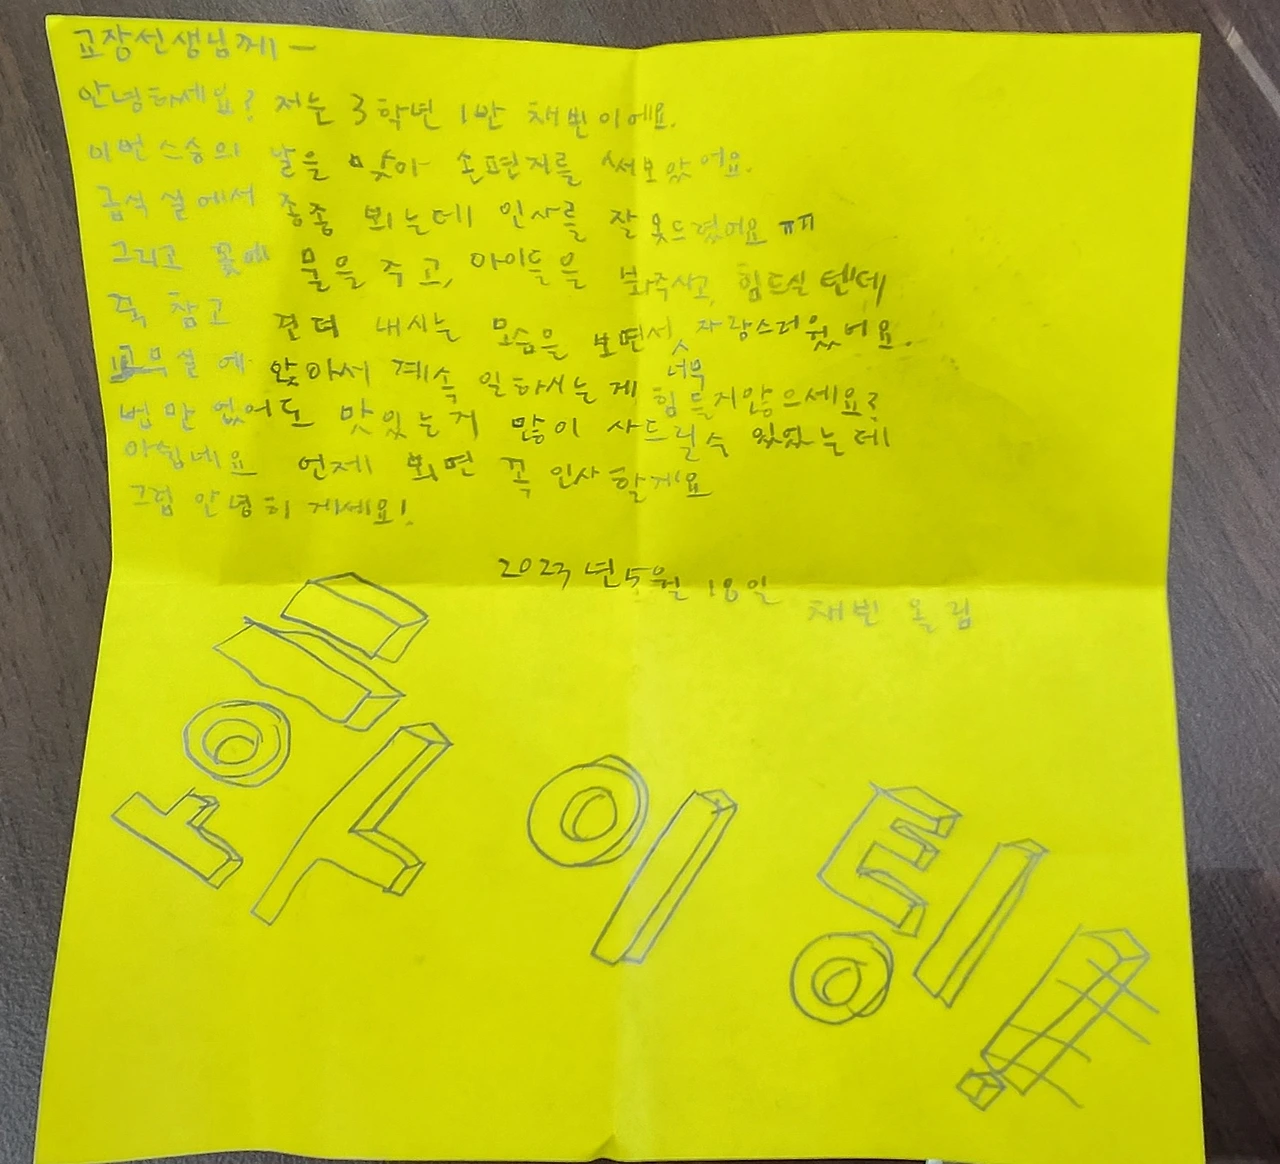 교장선생님께 —
안녕하세요? 저는 3학년 1반 채빈이에요.
이번 스승의 날을 맞아 손편지를 써보았어요.
급식실에서 종종 뵈는데 인사를 잘 못드렸어요 ㅠㅠ
그리고 꽃에 물을 주고, 아이들을 봐주시고, 힘드실 텐데
꾹 참고 견뎌 내시는 모습을 보면서, 자랑스러웠어요.
교무실에 앉아서 계속 일하시는 게 너무 힘들지않으세요?
법만 없어도 맛있는거 많이 사드릴수 있었는데
아쉽네요 언제 뵈면 꼭 인사 할게요
그럼 안녕히 계세요!
2023년 5월 18일
채빈 올림
화이팅!